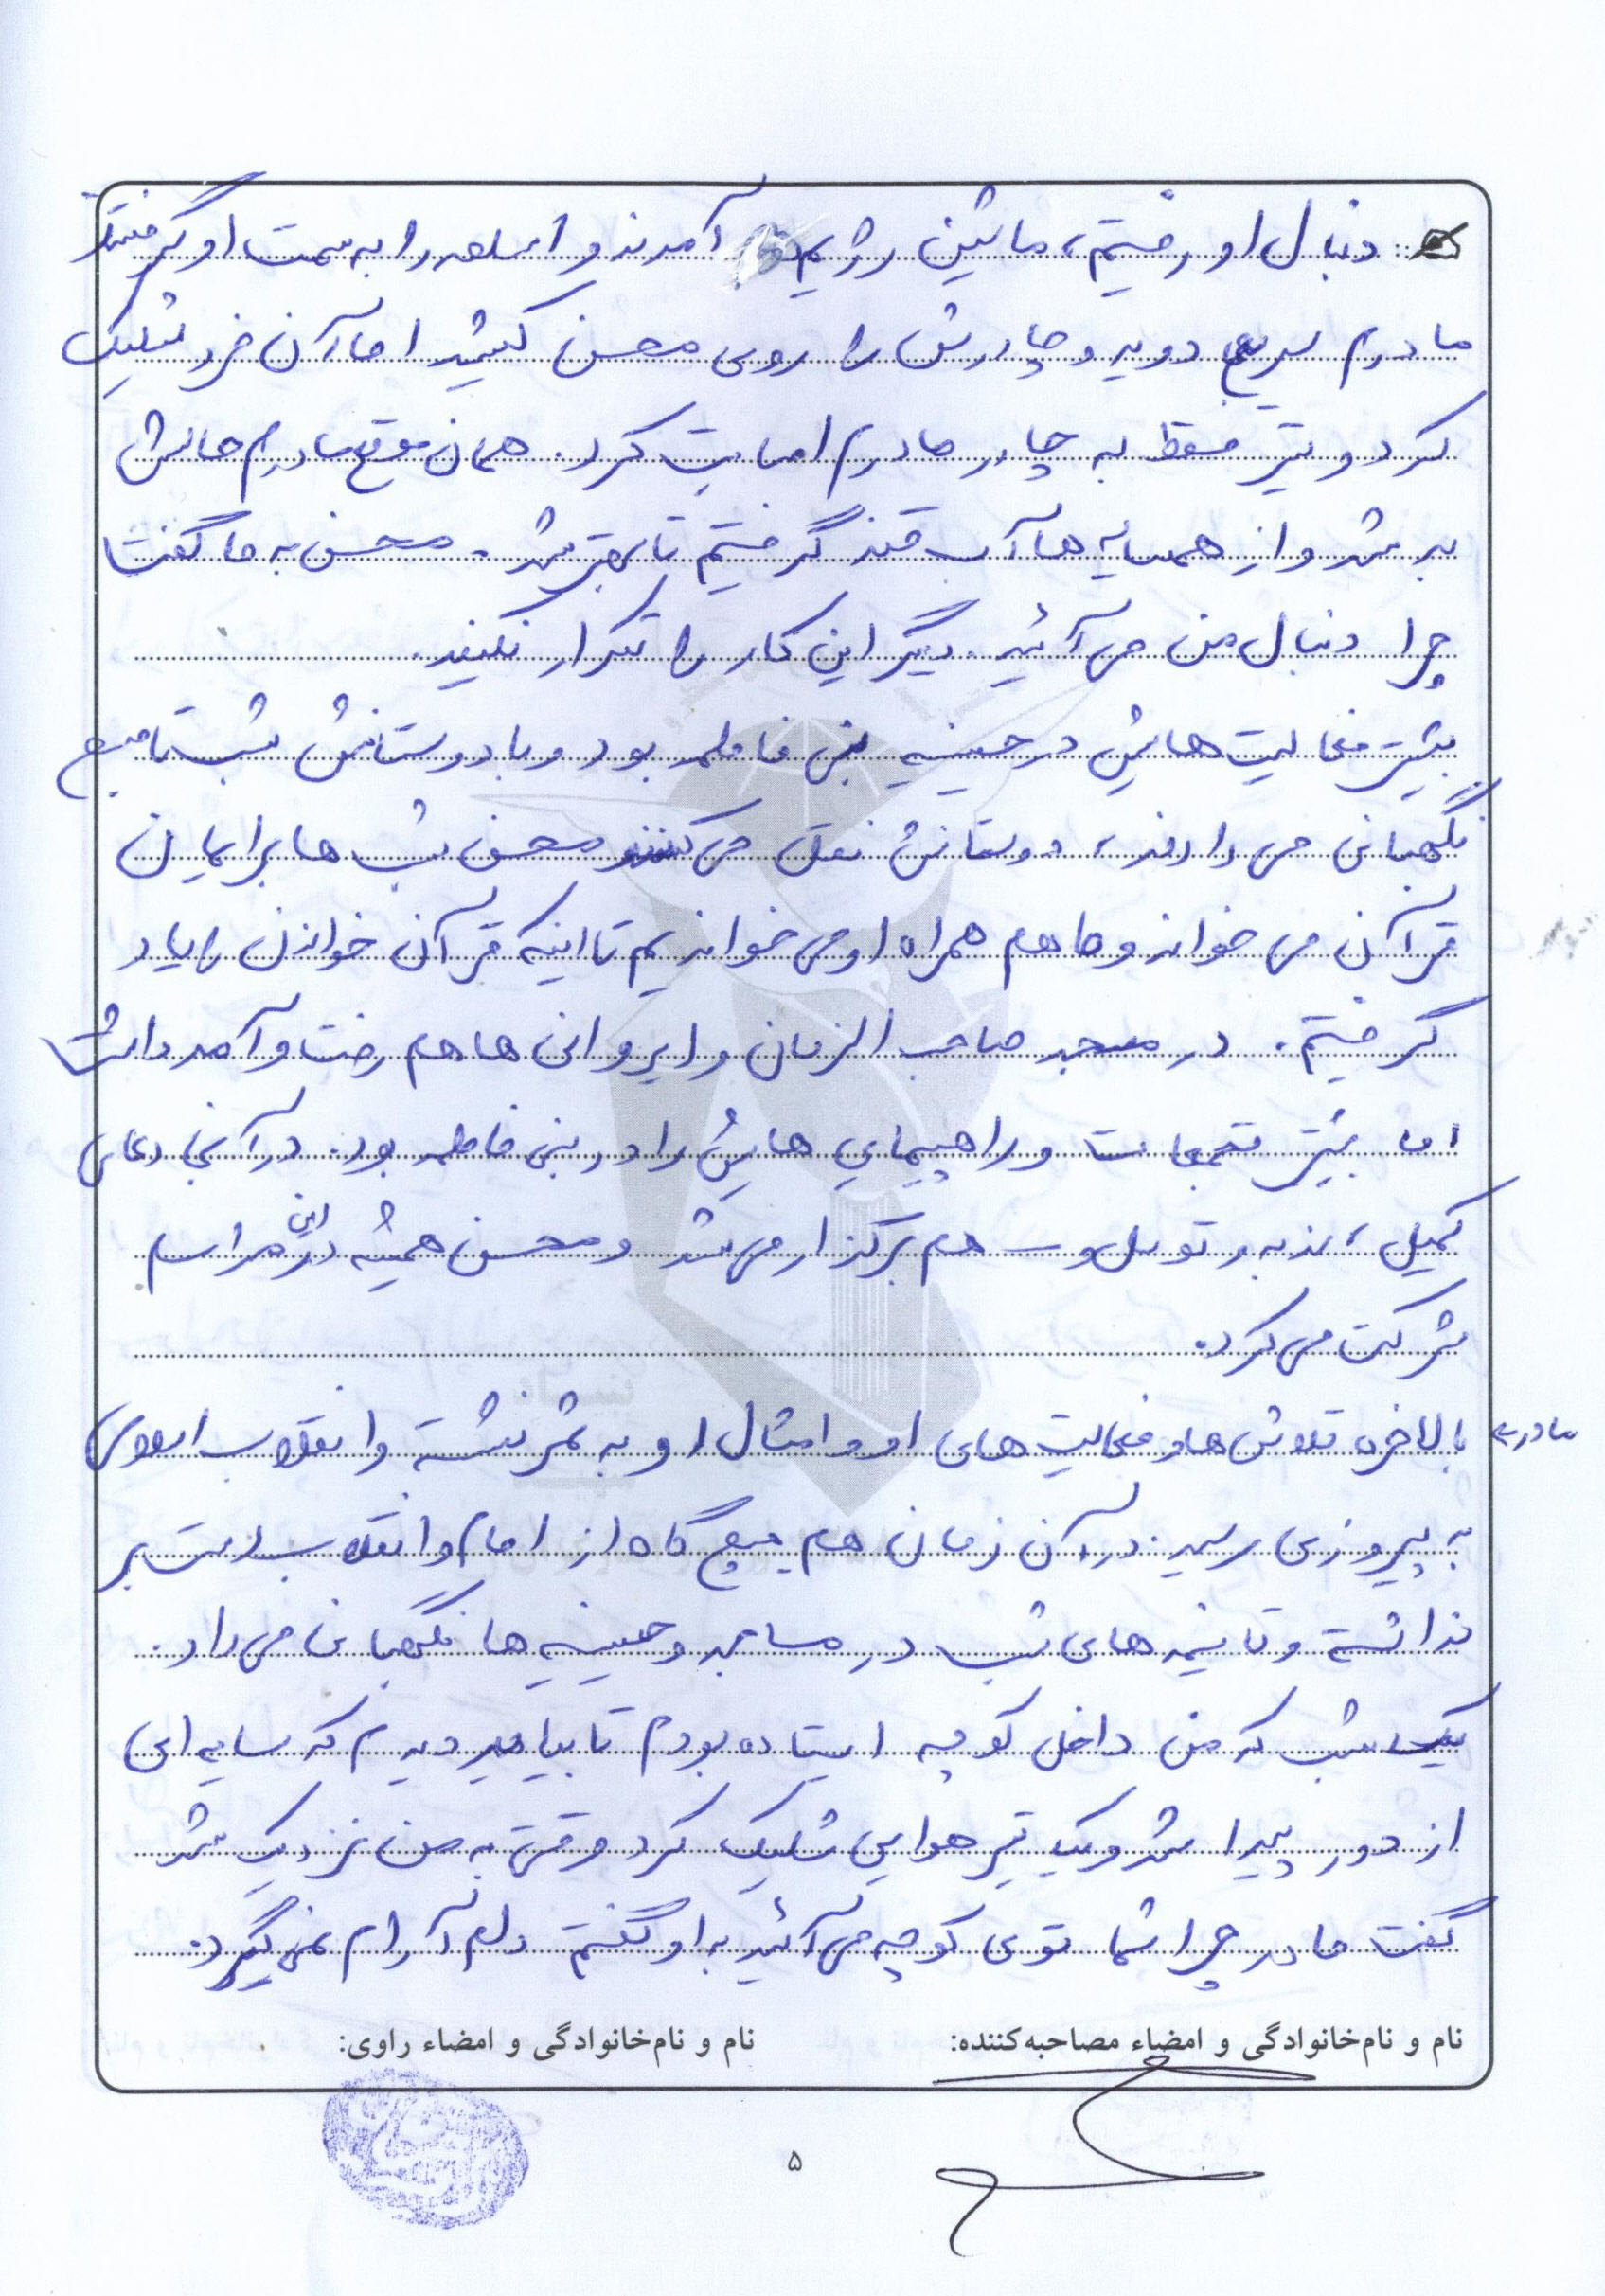 دنبال او رفتیم، ماشین رژیم آمدند و اسلحه را به سمت او گرفتند
مادرم سریع دوید و چادرش را روی محسن کشید اما آن فرد شلیک
کرد و تیر فقط به چادر مادرم اصابت کرد. همان موقع مادرم حالش
بد شد و از همسایه ها آب قند گرفتیم تا بهتر شد. محسن به ما گفت
چرا دنبال من می آئید. دیگر این کار را تکرار نکنید.
بیشتر فعالیت هایش در حسینیه بنی فاطمه بود و با دوستانش شب تا صبح
نگهبانی می دادند، دوستانش نقل می کنند محسن شب ها برایمان
قرآن می خواند و ما هم همراه او می خواندیم تا اینکه قرآن خواندن را یاد
گرفتیم. در مسجد صاحب الزمان و ایروانی ها هم رفت و آمد داشت
اما بیشتر تجمعات و راهپیمایی هایش را در بنی فاطمه بود. در آنجا دعای
کمیل، ندبه و توسل و هم برگزار می شد و محسن همیشه در این مراسم
شرکت می کرد.
مادر: بالاخره تلاش ها و فعالیت های او و امثال او به ثمر نشسته و انقلاب اسلامی
به پیروزی رسید. در آن زمان هم هیچ گاه از امام و انقلاب دست بر
نداشته و تا نیمه های شب در مساجد و حسینیه ها نگهبانی می داد.
یک شب که من داخل کوچه ایستاده بودم تا بیاید دیدم که سایه ای
از دور پیدا شد و یک تیر هوایی شلیک کرد وقتی به من نزدیک شد
گفت مادر چرا شما توی کوچه می آئید به او گفتم دلم آرام نمی گیرد.
نام و نام‌خانوادگی و امضاء مصاحبه‌کننده: نام و نام‌خانوادگی و امضاء راوی:
۵